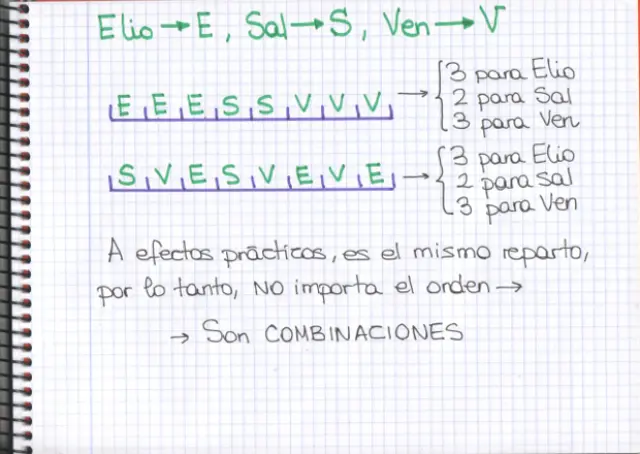 Elio → E, Sal → S, Ven → V
E E E S S V V V → { 3 para Elio
2 para Sal
3 para Ven
S V E S V E V E → { 3 para Elio
2 para Sal
3 para Ven
A efectos prácticos, es el mismo reparto,
por lo tanto, NO importa el orden →
→ Son COMBINACIONES